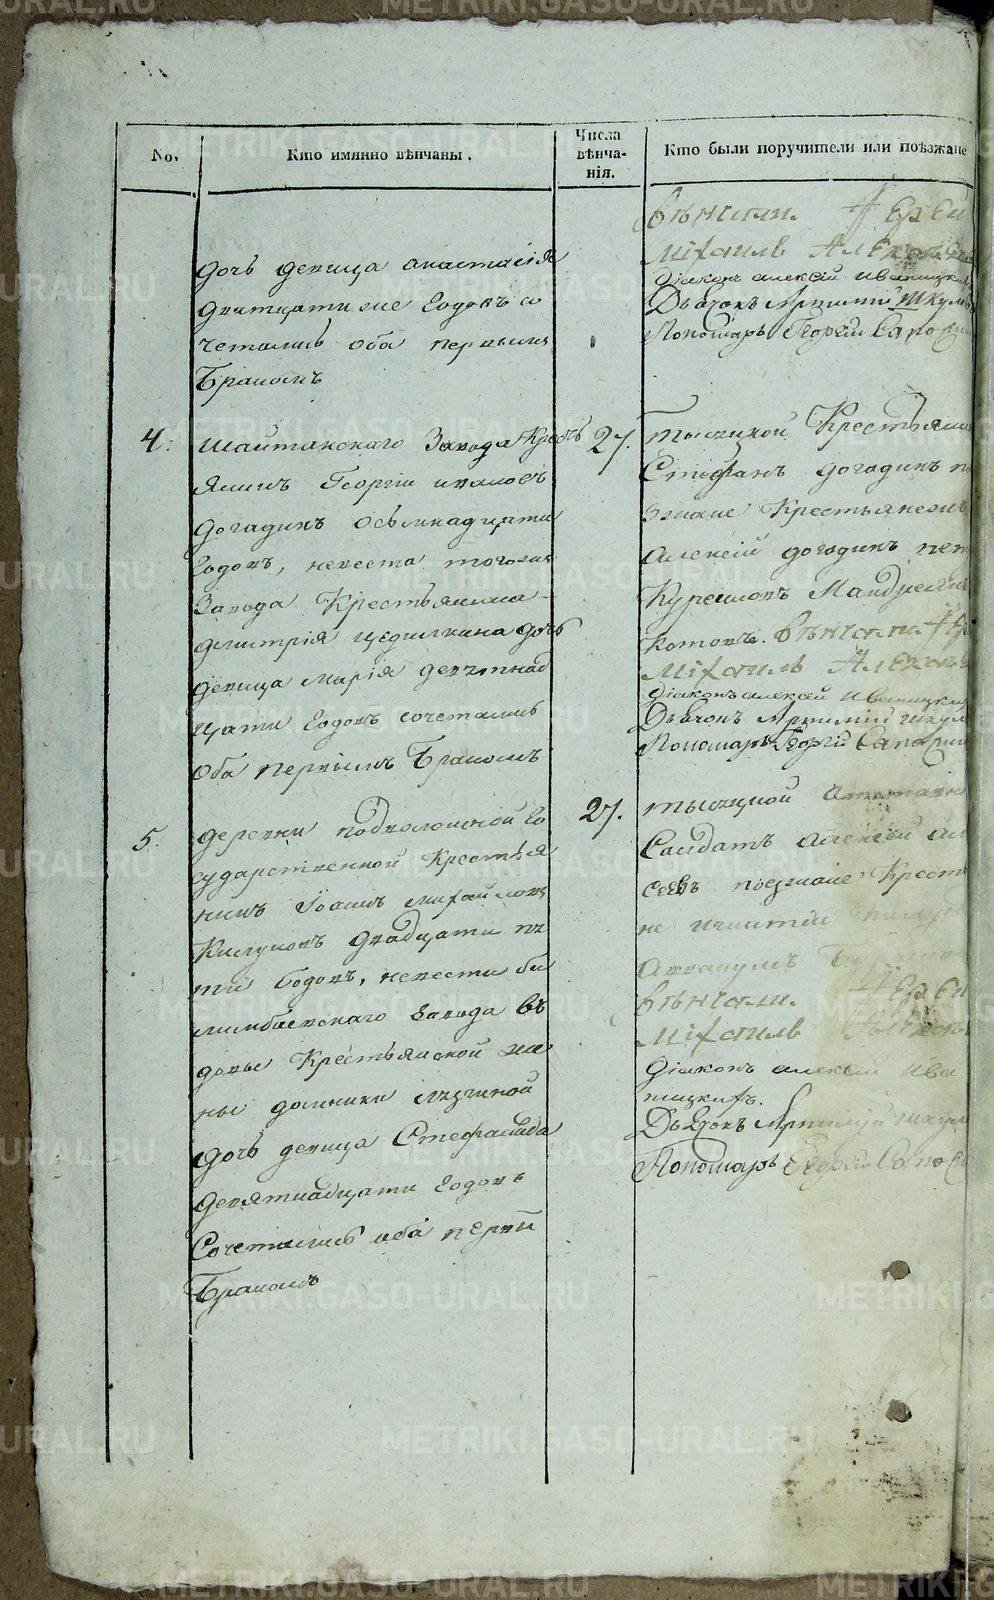 No.
Кто имянно вѣнчаны.
Числа
вѣнча-
нія.
Кто были поручители или поѣзжане
дочь девица анастасія
дватцати же годовъ со
четались оба первымъ
Бракомъ
вѣнчали. Іерей
Міхаилъ Алеѯ
Діаконъ алексій Ива
Дьячокъ Артемій Шкул
Пономарь Георгій Сапо
4.
шайтанскаго Завода Кресть
янинъ Георгій ивановъ
догадинъ осьмнадцати
годовъ, невеста тогожъ
Завода Крестьянина
димитрія дочь
девица марія девятнад
цати годовъ сочетались
оба первымъ Бракомъ
27.
тысяцкой Крестьян
Стефанъ догадинъ по
зжане Крестьяне
Алексій догадинъ пет
Котовъ. вѣнчали. Іер
Міхаилъ Алеѯ
Діаконъ алексій Иваницкій
Дьячокъ Артемій шкул
Пономарь Георгій Сапо
5.
деревни подволошной го
сударственной Крестья
нинъ Іоаннъ михайловъ
двадцати пя
ти годовъ, невеста би
лимбаевскаго завода въ
довы Крестьянской же
ны домники
дочь девица Стефанида
девятнадцати годовъ
Сочетались оба первы
Бракомъ
27.
тысяцкой
Салдатъ Алексей ал
сеевъ поезжане Крест
не игнатей
аввакумъ
вѣнчали. Іерей
Міхаилъ
Діаконъ алексій Ива
ницкихъ.
Дьячокъ Артемій шкул
Пономарь Георгій Сапо
METRIKI.GASO-URAL.RU